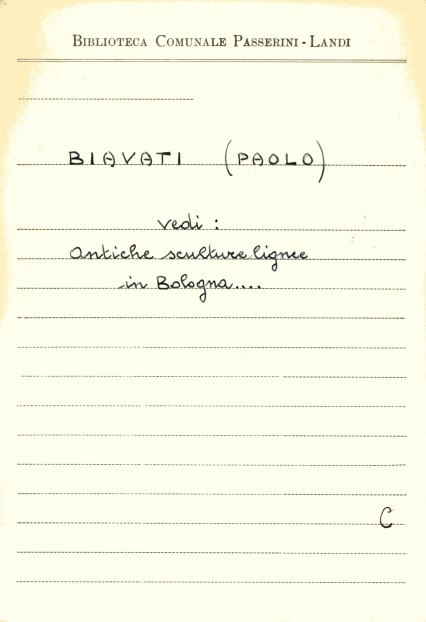 BIBLIOTECA COMUNALE PASSERINI - LANDI
BIAVATI (PAOLO)
vedi :
Antiche sculture lignee
in Bologna....
C